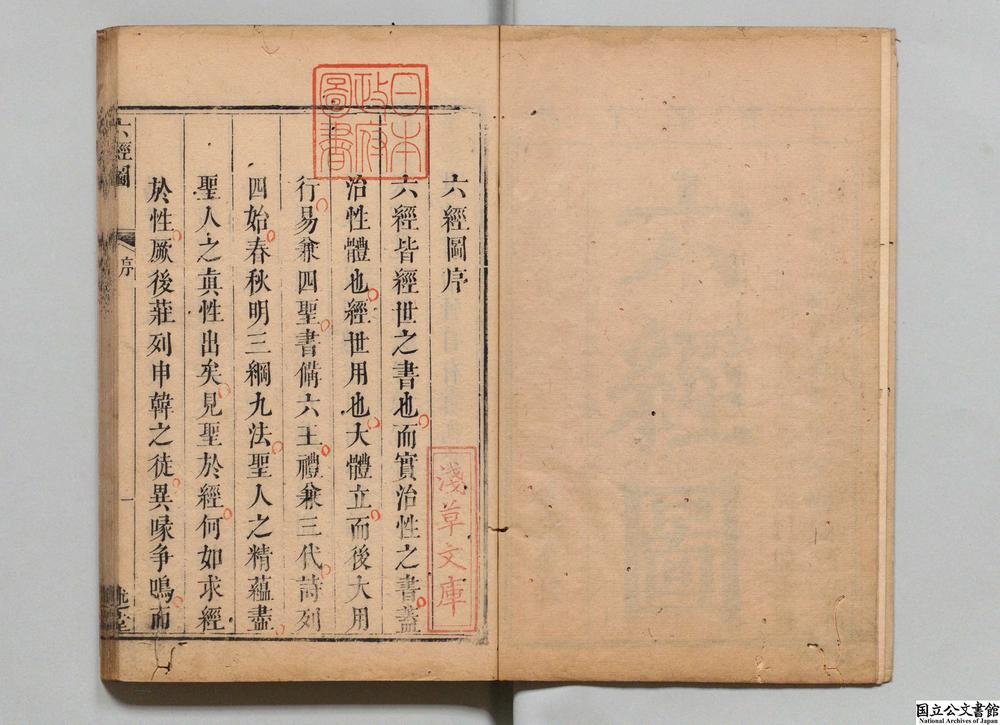 六經圖序
六經皆經世之書也而實治性之書蓋
治性體也經世用也大體立而後大用
行易兼四聖書備六王禮兼三代詩列
四始春秋明三綱九法聖人之精蘊盡
聖人之真性出矣見聖於經何如求經
於性厥後莊列申韓之徒異喙争鳴而
日本
政府
圖書
淺草文庫
六經圖
序
一
国立公文書館
National Archives of Japan